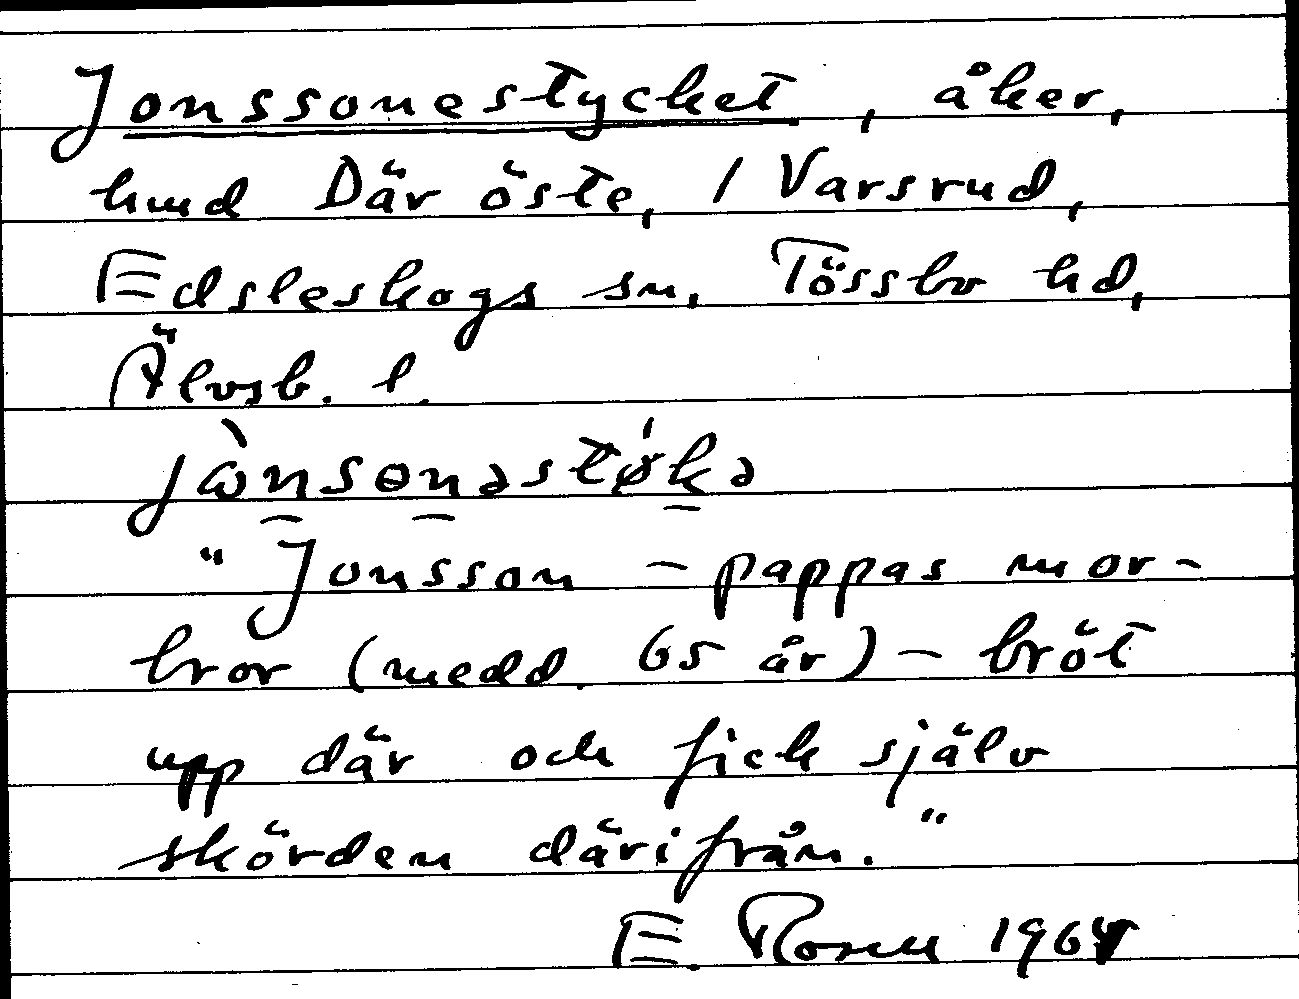 Jonssonestycket, åker,
hmd Där öste, 1 Varsrud,
Edsleskogs sn, Tössbo hd,
Älvsb. l.
jɷ̀nsɵnəstø̍kə
" Jonsson – pappas mor-
bror (medd. 65 år) – bröt
upp där och fick själv
skörden därifrån."
E. Rosell 1964